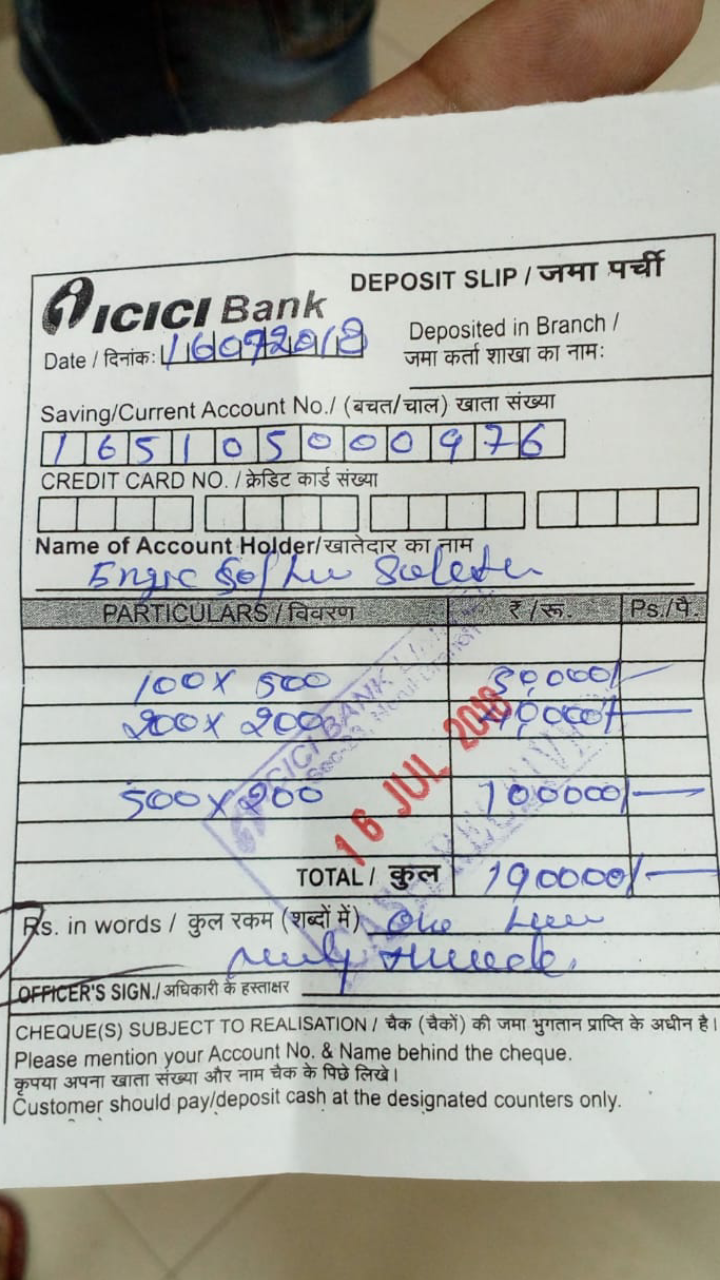 ICICI Bank
DEPOSIT SLIP / जमा पर्ची
Date / दिनांक: 16072018
Deposited in Branch /
जमा कर्ता शाखा का नाम:
Saving/Current Account No./ (बचत/चाल) खाता संख्या
165105000976
CREDIT CARD NO. / क्रेडिट कार्ड संख्या
Name of Account Holder/खातेदार का नाम
PARTICULARS / विवरण ₹ /रू. Ps./पै.
100 X 500 50,000/-
200 X 200 40,000/-
500 X 200 100000/-
ICICI BANK
16 JUL 2018
TOTAL / कुल 190000/-
Rs. in words / कुल रकम (शब्दों में) One
OFFICER'S SIGN./ अधिकारी के हस्ताक्षर
CHEQUE(S) SUBJECT TO REALISATION / चैक (चैकों) की जमा भुगतान प्राप्ति के अधीन है।
Please mention your Account No. & Name behind the cheque.
कृपया अपना खाता संख्या और नाम चैक के पिछे लिखे।
Customer should pay/deposit cash at the designated counters only.